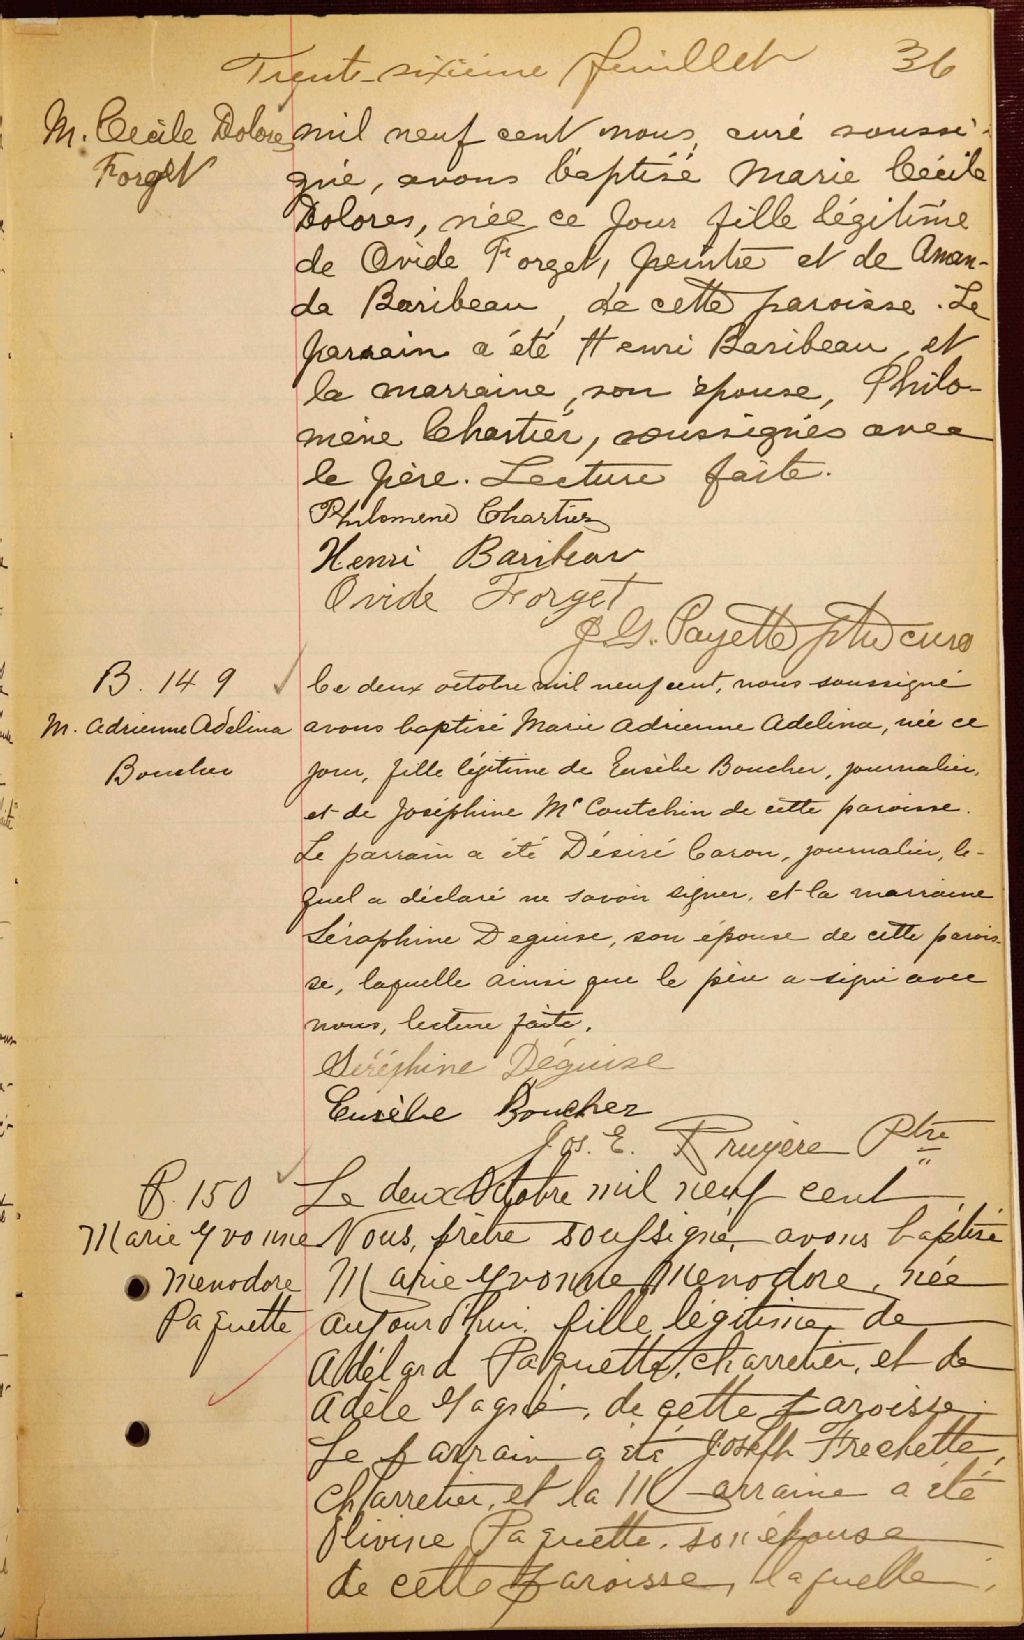 Trente-sixième feuillet 36
M. Cécile Dolores
Forget
mil neuf cent nous, curé soussi-
gné, avons baptisé Marie Cécile
Dolores, née ce jour fille légitime
de Ovide Forget, peintre et de Aman-
da Baribeau, de cette paroisse. Le
parrain a été Henri Baribeau et
la marraine, son épouse, Philo-
mène Chartier, soussignés avec
le père. Lecture faite.
Philomene Chartier
Henri Baribeau
Ovide Forget
J. G. Payette ptre curé
B. 149
M. Adrienne Adelina
Boucher
Ce deux octobre mil neuf cent, nous soussigné
avons baptisé Marie Adrienne Adelina, née ce
jour, fille légitime de Eusèbe Boucher, journalier,
et de Joséphine Mc Coutchin de cette paroisse.
Le parrain a été Désiré Caron, journalier, le-
quel a déclaré ne savoir signer, et la marraine
Séraphine Deguise, son épouse de cette parois-
se, laquelle ainsi que le père a signé avec
nous, lecture faite.
Séréphine Déguise
Eusèbe Boucher
Jos. E. Bruyère Ptre
B. 150
Marie Yvonne
Menodore
Paquette
Le deux Octobre mil neuf cent
Nous, prêtre soussigné, avons baptisé
Marie Yvonne Menodore, née
aujourd'hui, fille légitime de
Adélard Paquette, charretier, et de
Adèle Gagné, de cette paroisse.
Le parrain a été Joseph Frechette,
charretier, et la Marraine a été
Olivine Paquette, son épouse
de cette paroisse, laquelle,